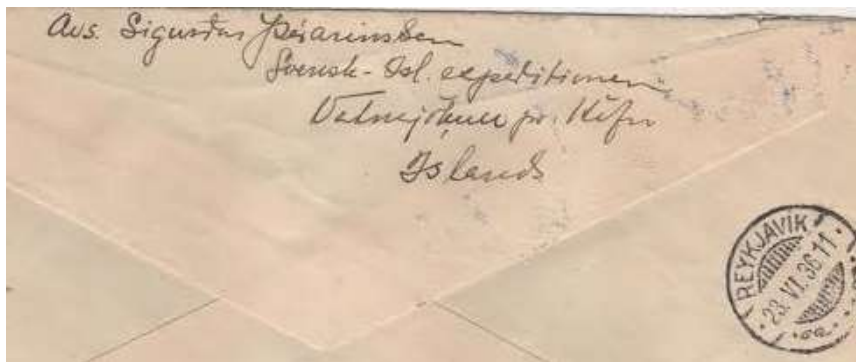 Avs. Sigurður Þórarinsson
Svensk-Isl. expeditionen
Vatnajökull pr. Höfn
Island
REYKJAVIK
23. VI. 36. 11